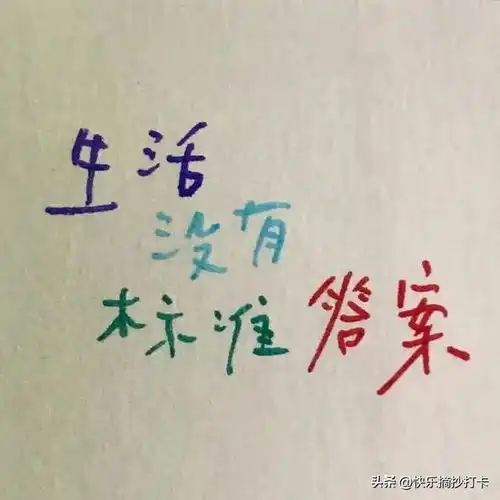 生活
没有
标准答案
头条@快乐摘抄打卡